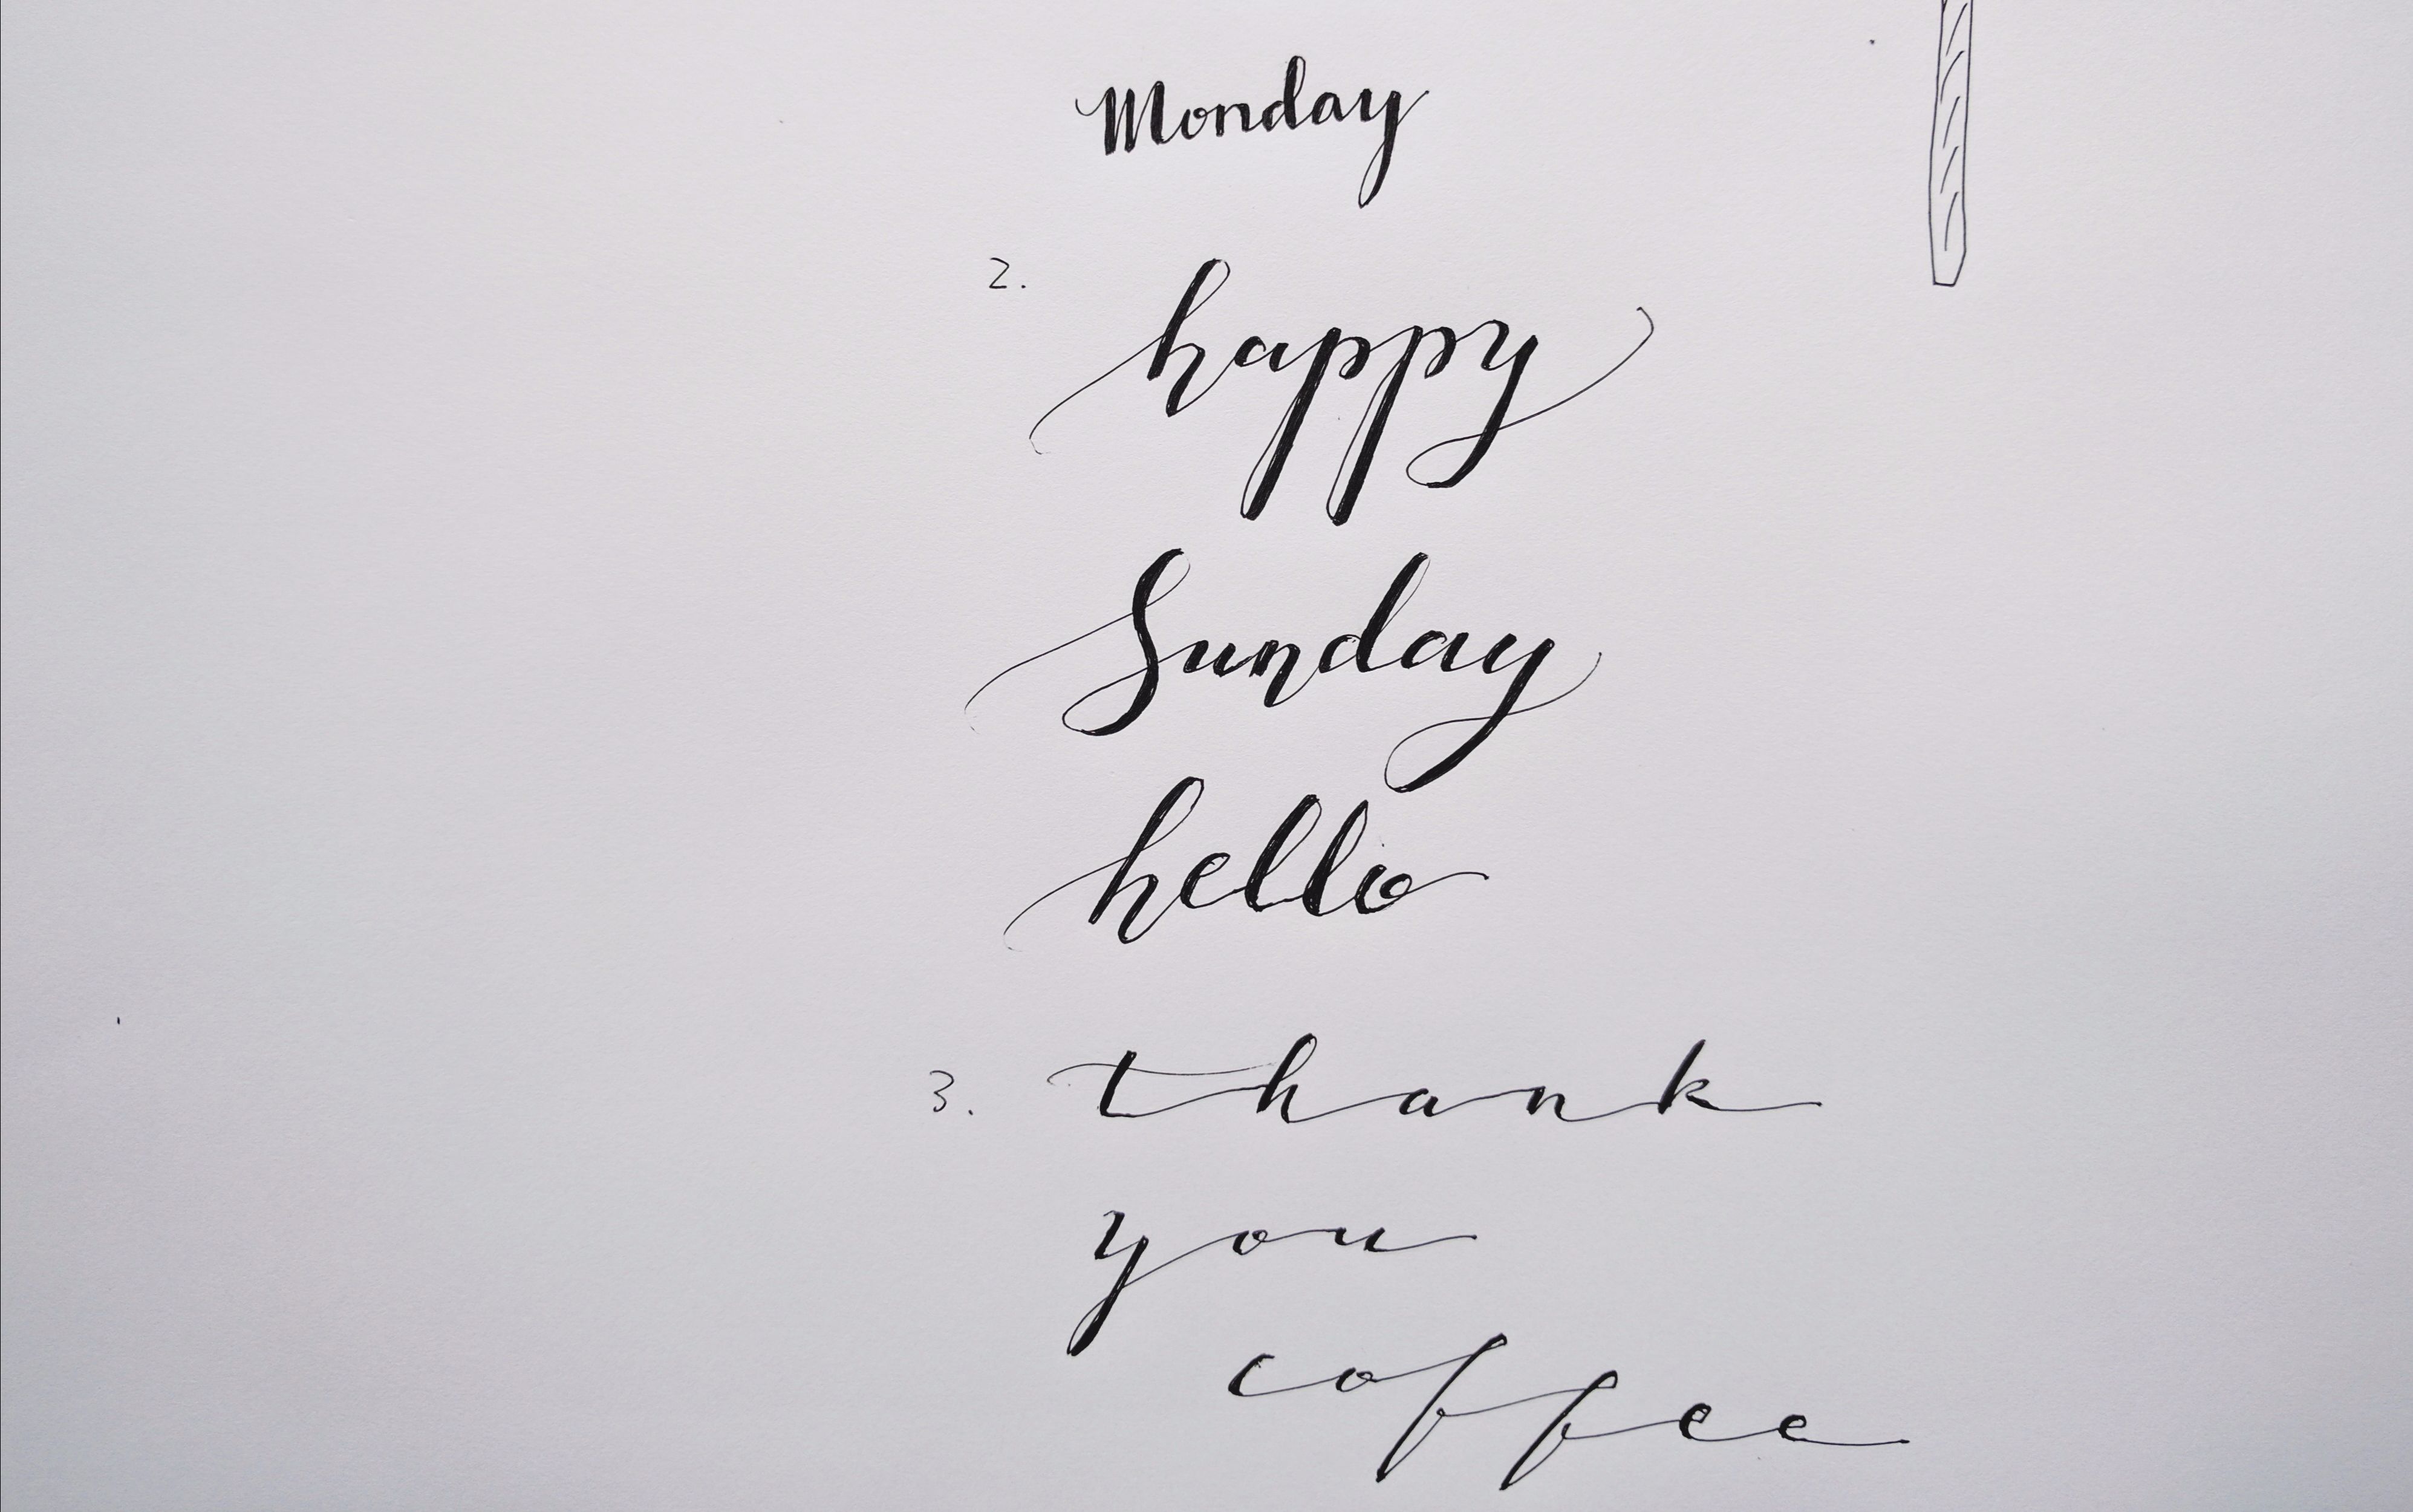 Monday
2. happy
Sunday
hello
3. thank
you
coffee